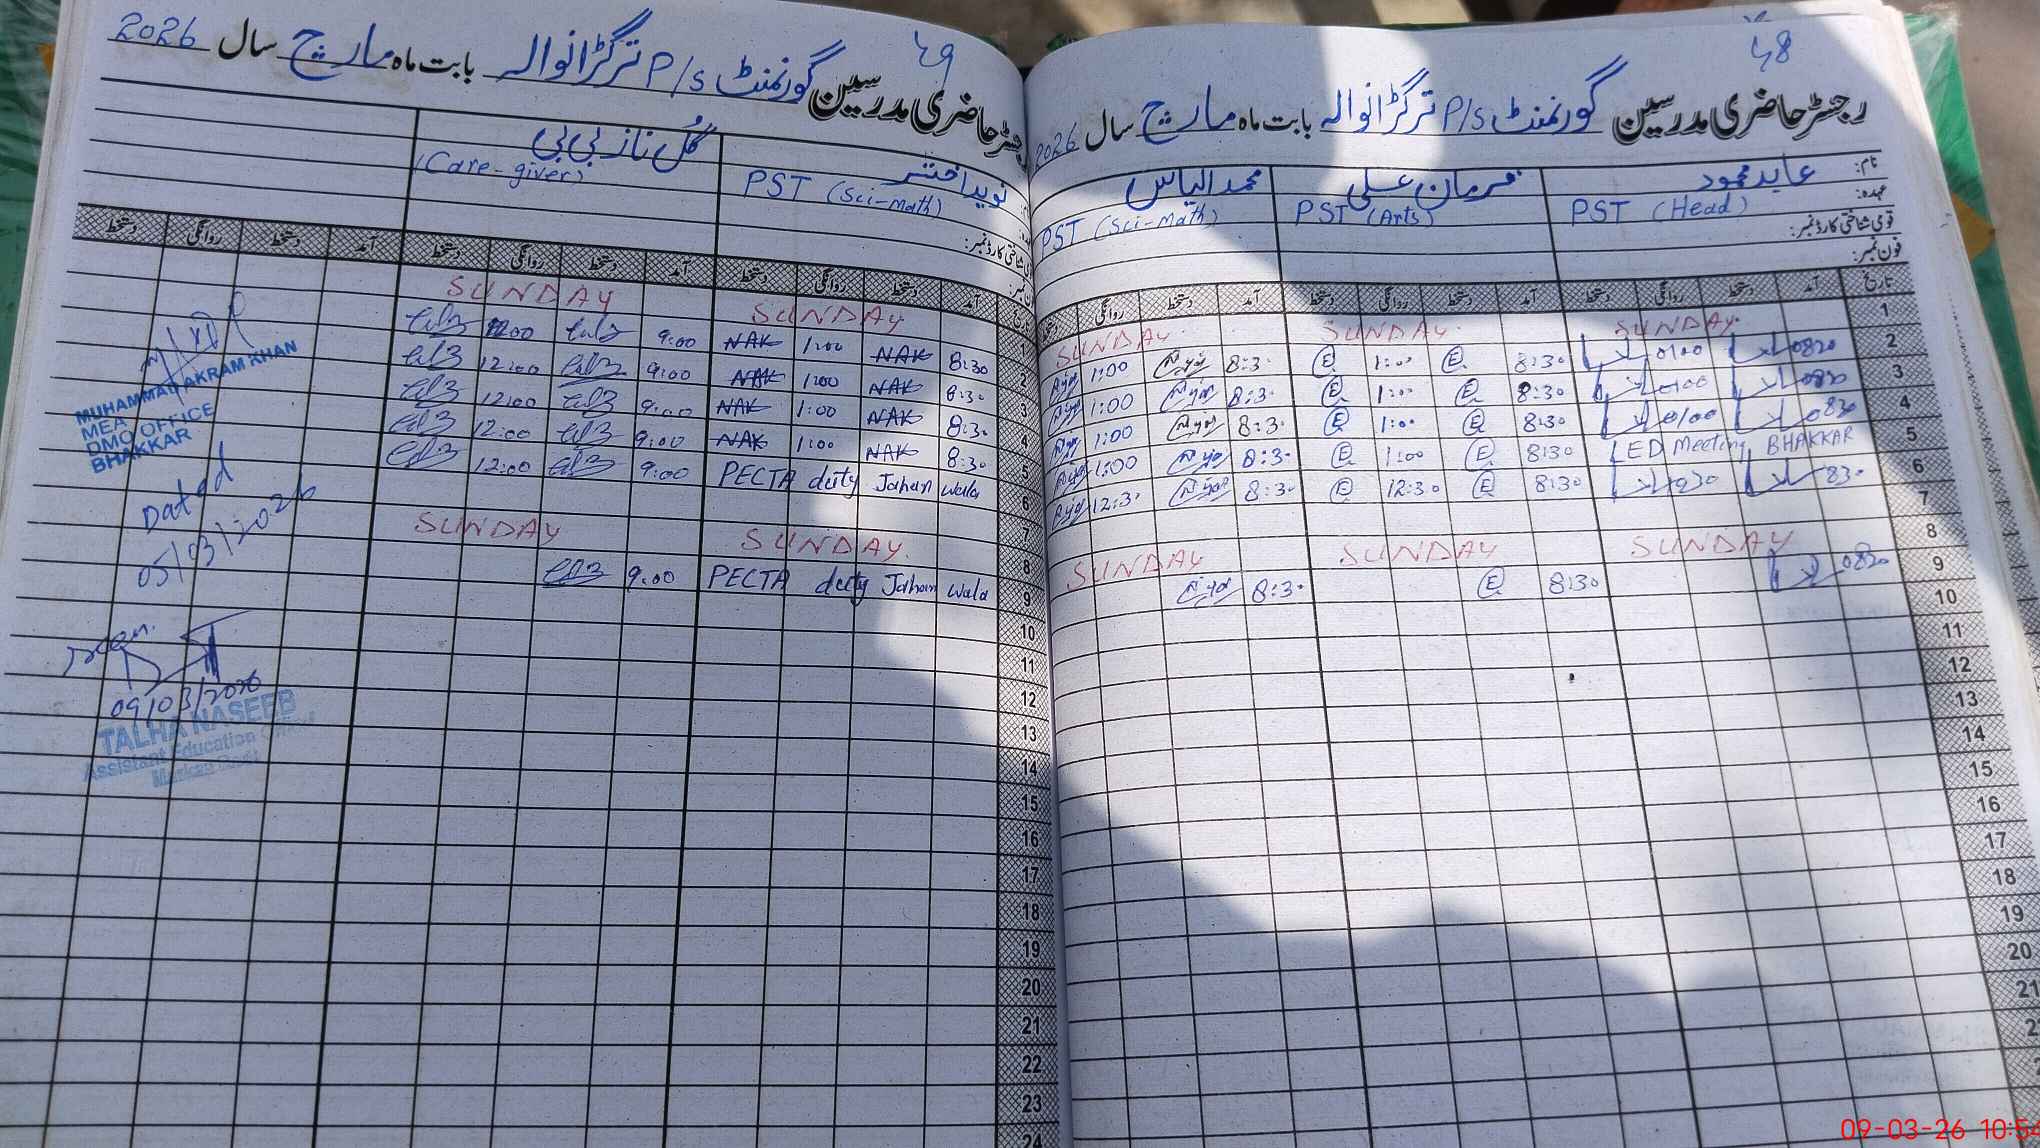 48
رجسٹر حاضری مدرسین گورنمنٹ P/S ترگڑانوالہ بابت ماہ مارچ سال 2026
نام: عابد محمود فرمان علی محمد الیاس
عہدہ: PST (Head) PST (Arts) PST (Sci-Math)
قومی شناختی کارڈ نمبر:
فون نمبر:
تاریخ آمد دستخط روانگی دستخط آمد دستخط روانگی دستخط آمد دستخط روانگی دستخط
1 SUNDAY SUNDAY SUNDAY
2 0830 0100 8:30 E 1:00 E 8:30 1:00
3 0830 0100 8:30 E 1:00 E 8:30 1:00
4 0830 0100 8:30 E 1:00 E 8:30 1:00
5 LED Meeting BHAKKAR 8:30 E 1:00 E 8:30 1:00
6 830 1230 8:30 E 12:30 E 8:30 12:30
7
8 SUNDAY SUNDAY SUNDAY
9 0830 8:30 E 8:30
10
11
12
13
14
15
16
17
18
19
20
21
49
رجسٹر حاضری مدرسین گورنمنٹ P/S ترگڑانوالہ بابت ماہ مارچ سال 2026
نوید اختر گل ناز بی بی
PST (Sci-Math) (Care-giver)
قومی شناختی کارڈ نمبر:
تاریخ آمد دستخط روانگی دستخط آمد دستخط روانگی دستخط آمد دستخط روانگی دستخط
1 SUNDAY SUNDAY
2 8:30 NAK 1:00 NAK 9:00 12:00
3 8:30 NAK 1:00 NAK 9:00 12:00
4 8:30 NAK 1:00 NAK 9:00 12:00
5 8:30 NAK 1:00 NAK 9:00 12:00
6 PECTA duty Jahan wala 9:00 12:00
7
8 SUNDAY SUNDAY
9 PECTA duty Jahan wala 9:00
10
11
12
13
14
15
16
17
18
19
20
21
22
23
24
MUHAMMAD AKRAM KHAN
MEA
DMO OFFICE
BHAKKAR
Dated
05/03/2026
Seen
09/03/2026
TALHA NASEEB
Assistant Education Officer
09-03-26 10:54